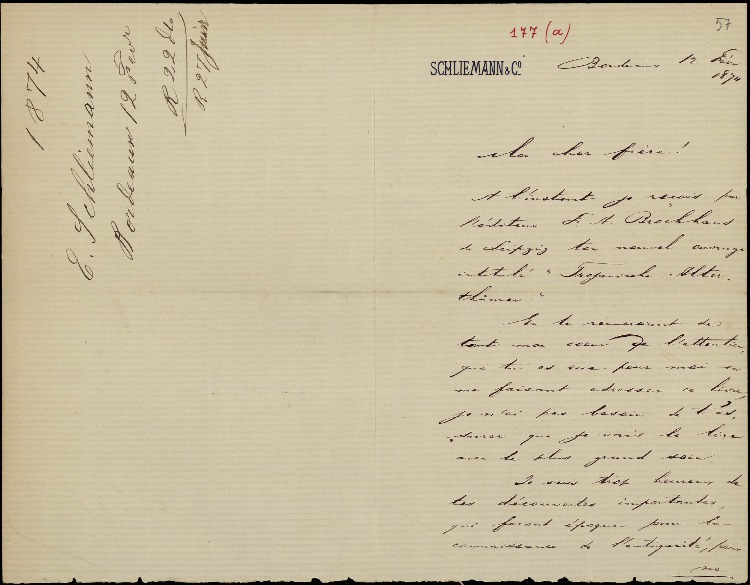 1874
C. Schliemann
Bordeaux 12 Fevr
R 22 do
R 27 Juin
177 (a)
57
SCHLIEMANN & Co
Bordeaux 12 Fév
1874
Mon cher frère!
A l'instant je reçois par
l'éditeur F. A. Brockhaus
de Leipzig ton nouvel ouvrage
intitulé "Trojanische Alter-
thümer"
En te remerciant de
tout mon coeur de l'attention,
que tu as eue pour moi en
me faisant adresser ce livre,
je n'ai pas besoin de t'as-
surer que je vais le lire
avec le plus grand soin
Je suis trop heureux de
tes découvertes importantes,
qui feront époque pour la
connaissance de l'antiquité, pour